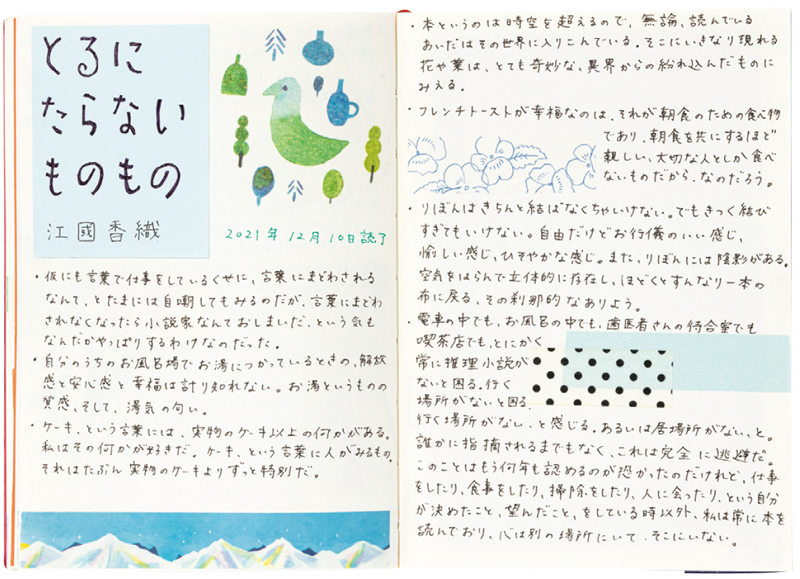 とるに
たらない
ものもの
江國香織
2021年12月10日読了
・仮にも言葉で仕事をしているくせに、言葉にまどわされる
なんて、とたまには自嘲してもみるのだが、言葉にまどわ
されなくなったら小説家なんておしまいだ、という気も
なんだかやっぱりするわけなのだった。
・自分のうちのお風呂場でお湯につかっているときの、解放
感と安心感と幸福は計り知れない。お湯というものの
質感、そして、湯気の匂い。
・ケーキ、という言葉には、実物のケーキ以上の何かがある。
私はその何かが好きだ。ケーキ、という言葉に人がみるもの。
それはたぶん実物のケーキよりずっと特別だ。
・本というのは時空を超えるので、無論、読んでいる
あいだはその世界に入りこんでいる。そこにいきなり現れる
花や葉は、とても奇妙な、異界からの紛れ込んだものに
みえる。
・フレンチトーストが幸福なのは、それが朝食のための食べ物
であり、朝食を共にするほど
親しい、大切な人としか食べ
ないものだから、なのだろう。
・りぼんはきちんと結ばなくちゃいけない。でもきつく結び
すぎてもいけない。自由だけどお行儀のいい感じ、
愉しい感じ、ひそやかな感じ。また、りぼんには陰影がある。
空気をはらんで立体的に存在し、ほどくとすんなり一本の
布に戻る、その刹那的なありよう。
・電車の中でも、お風呂の中でも、歯医者さんの待合室でも
喫茶店でも、とにかく
常に推理小説が
ないと困る。行く
場所がないと困る。
行く場所がない、と感じる。あるいは居場所がない、と。
誰かに指摘されるまでもなく、これは完全に逃避だ。
このことはもう何年も認めるのが恐かったのだけれど、仕事
をしたり、食事をしたり、掃除をしたり、人に会ったり、という自分
が決めたこと、望んだこと、をしている時以外、私は常に本を
読んでおり、心は別の場所にいて、そこにいない。